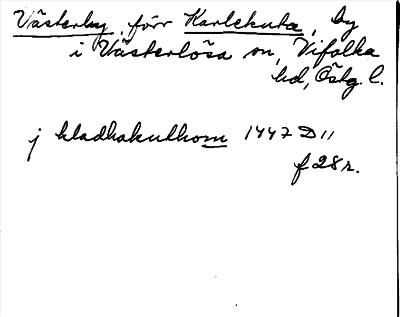 Västerby, förr Karlekuta, by
i Västerlösa sn, Vifolka
hd, Östg. l.
j kladhakulhom 1447 D 11
f 28 r.